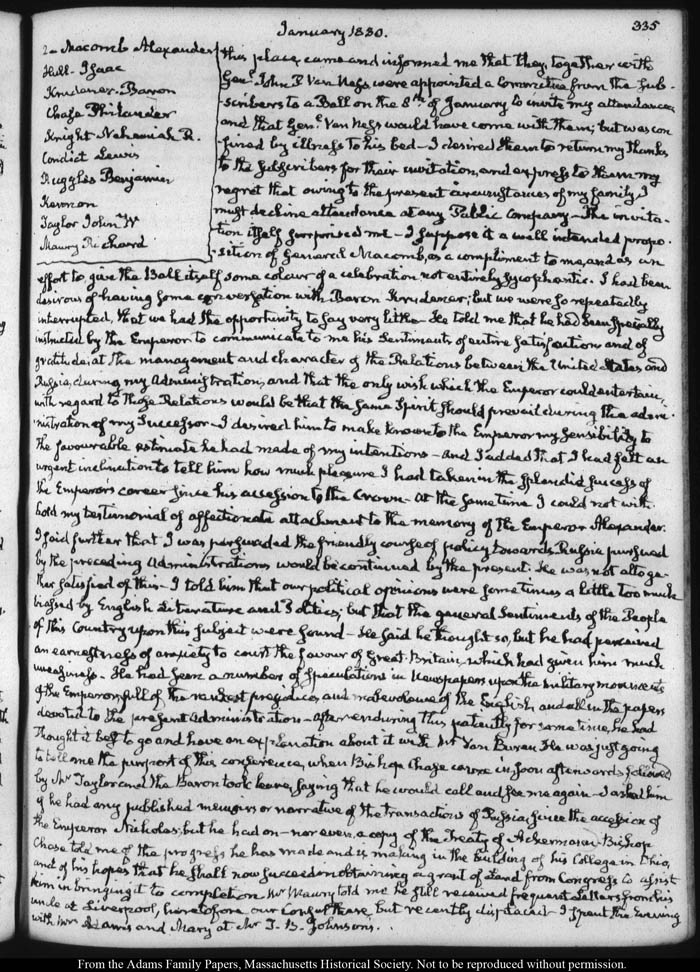 January 1830.
335
2 - Macomb Alexander
Hull - Isaac
Krudener - Baron
Chase Philander
Knight - Nehemiah R.
Condict Lewis
Ruggles Benjamin
Kennon
Taylor John W
Maury Richard
this place, came and informed me that they, together with
Genl. John P. Van Ness were appointed a Committee from the Sub-
-scribers to a Ball on the 8th of January to invite my attendance
and that Genl. Van Ness would have come with them; but was con
fined by illness to his bed - I desired them to return my thanks
to the subscribers for their invitation, and express to them my
regret that owing to the present circumstances of my family, I
must decline attendance at any Public Company - The invita-
-tion itself surprised me - I suppose it a well intended propo-
-sition of General Macomb, as a compliment to me, and as an
effort to give the Ball itself some colour of a celebration not entirely sycophantic. I had been
desirous of having some conversation with Baron Krudener; but we were so repeatedly
interrupted, that we had the opportunity to say very little - He told me that he had been specially
instructed by the Emperor to communicate to me his Sentiments of entire satisfaction and of
gratitude, at the management and character of the Relations between the United States and
Russia, during my Administration, and that the only wish which the Emperor could entertain,
with regard to those Relations would be that the same Spirit should prevail during the admi-
-nistration of my Successor - I desired him to make known to the Emperor my sensibility to
the favourable estimate he had made of my intentions - and I added that I had felt an
urgent inclination to tell him how much pleasure I had taken in the splendid success of
the Emperor's career since his accession to the Crown - At the same time I could not with-
hold my testimonial of affectionate attachment to the memory of the Emperor Alexander.
I said further that I was persuaded the friendly course of policy towards Russia pursued
by the preceding Administrations would be continued by the present. He was not altoge-
ther satisfied of this - I told him that our political opinions were sometimes a little too much
biassed by English Literature and Politics; but that the general Sentiments of the People
of this Country upon this subject were sound - He said he thought so, but he had perceived
an earnestness of anxiety to court the favour of Great-Britain, which had given him much
uneasiness - He had seen a number of speculations in Newspapers upon the military movements
of the Emperor, full of the rankest prejudices and malevolence of the English, and all in the papers
devoted to the present Administration - After enduring this patiently for some time, he had
thought it best to go and have an explanation about it with Mr Van Buren. He was just going
to tell me the purport of this conference, when Bishop Chase came in, soon afterwards followed
by Mr Taylor and the Baron took leave, saying that he would call and see me again - I asked him
if he had any published memoirs or narrative of the transactions of Russia, since the accession of
the Emperor Nicholas; but he had none - nor even a copy of the Treaty of Ackermann - Bishop
Chase told me of the progress he has made and is making in the building of his College in Ohio,
and of his hopes that he shall now succeed in obtaining a grant of Land from Congress to assist
him in bringing it to completion. Mr Maury told me he still received frequent Letters from his
uncle at Liverpool, heretofore our Consul there, but recently displaced - I spent the Evening
with Mrs Adams and Mary at Mr T. B. Johnson's.
From the Adams Family Papers, Massachusetts Historical Society. Not to be reproduced without permission.